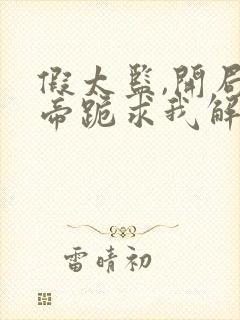 假太监,开局
帝跪求我解
雷晴初